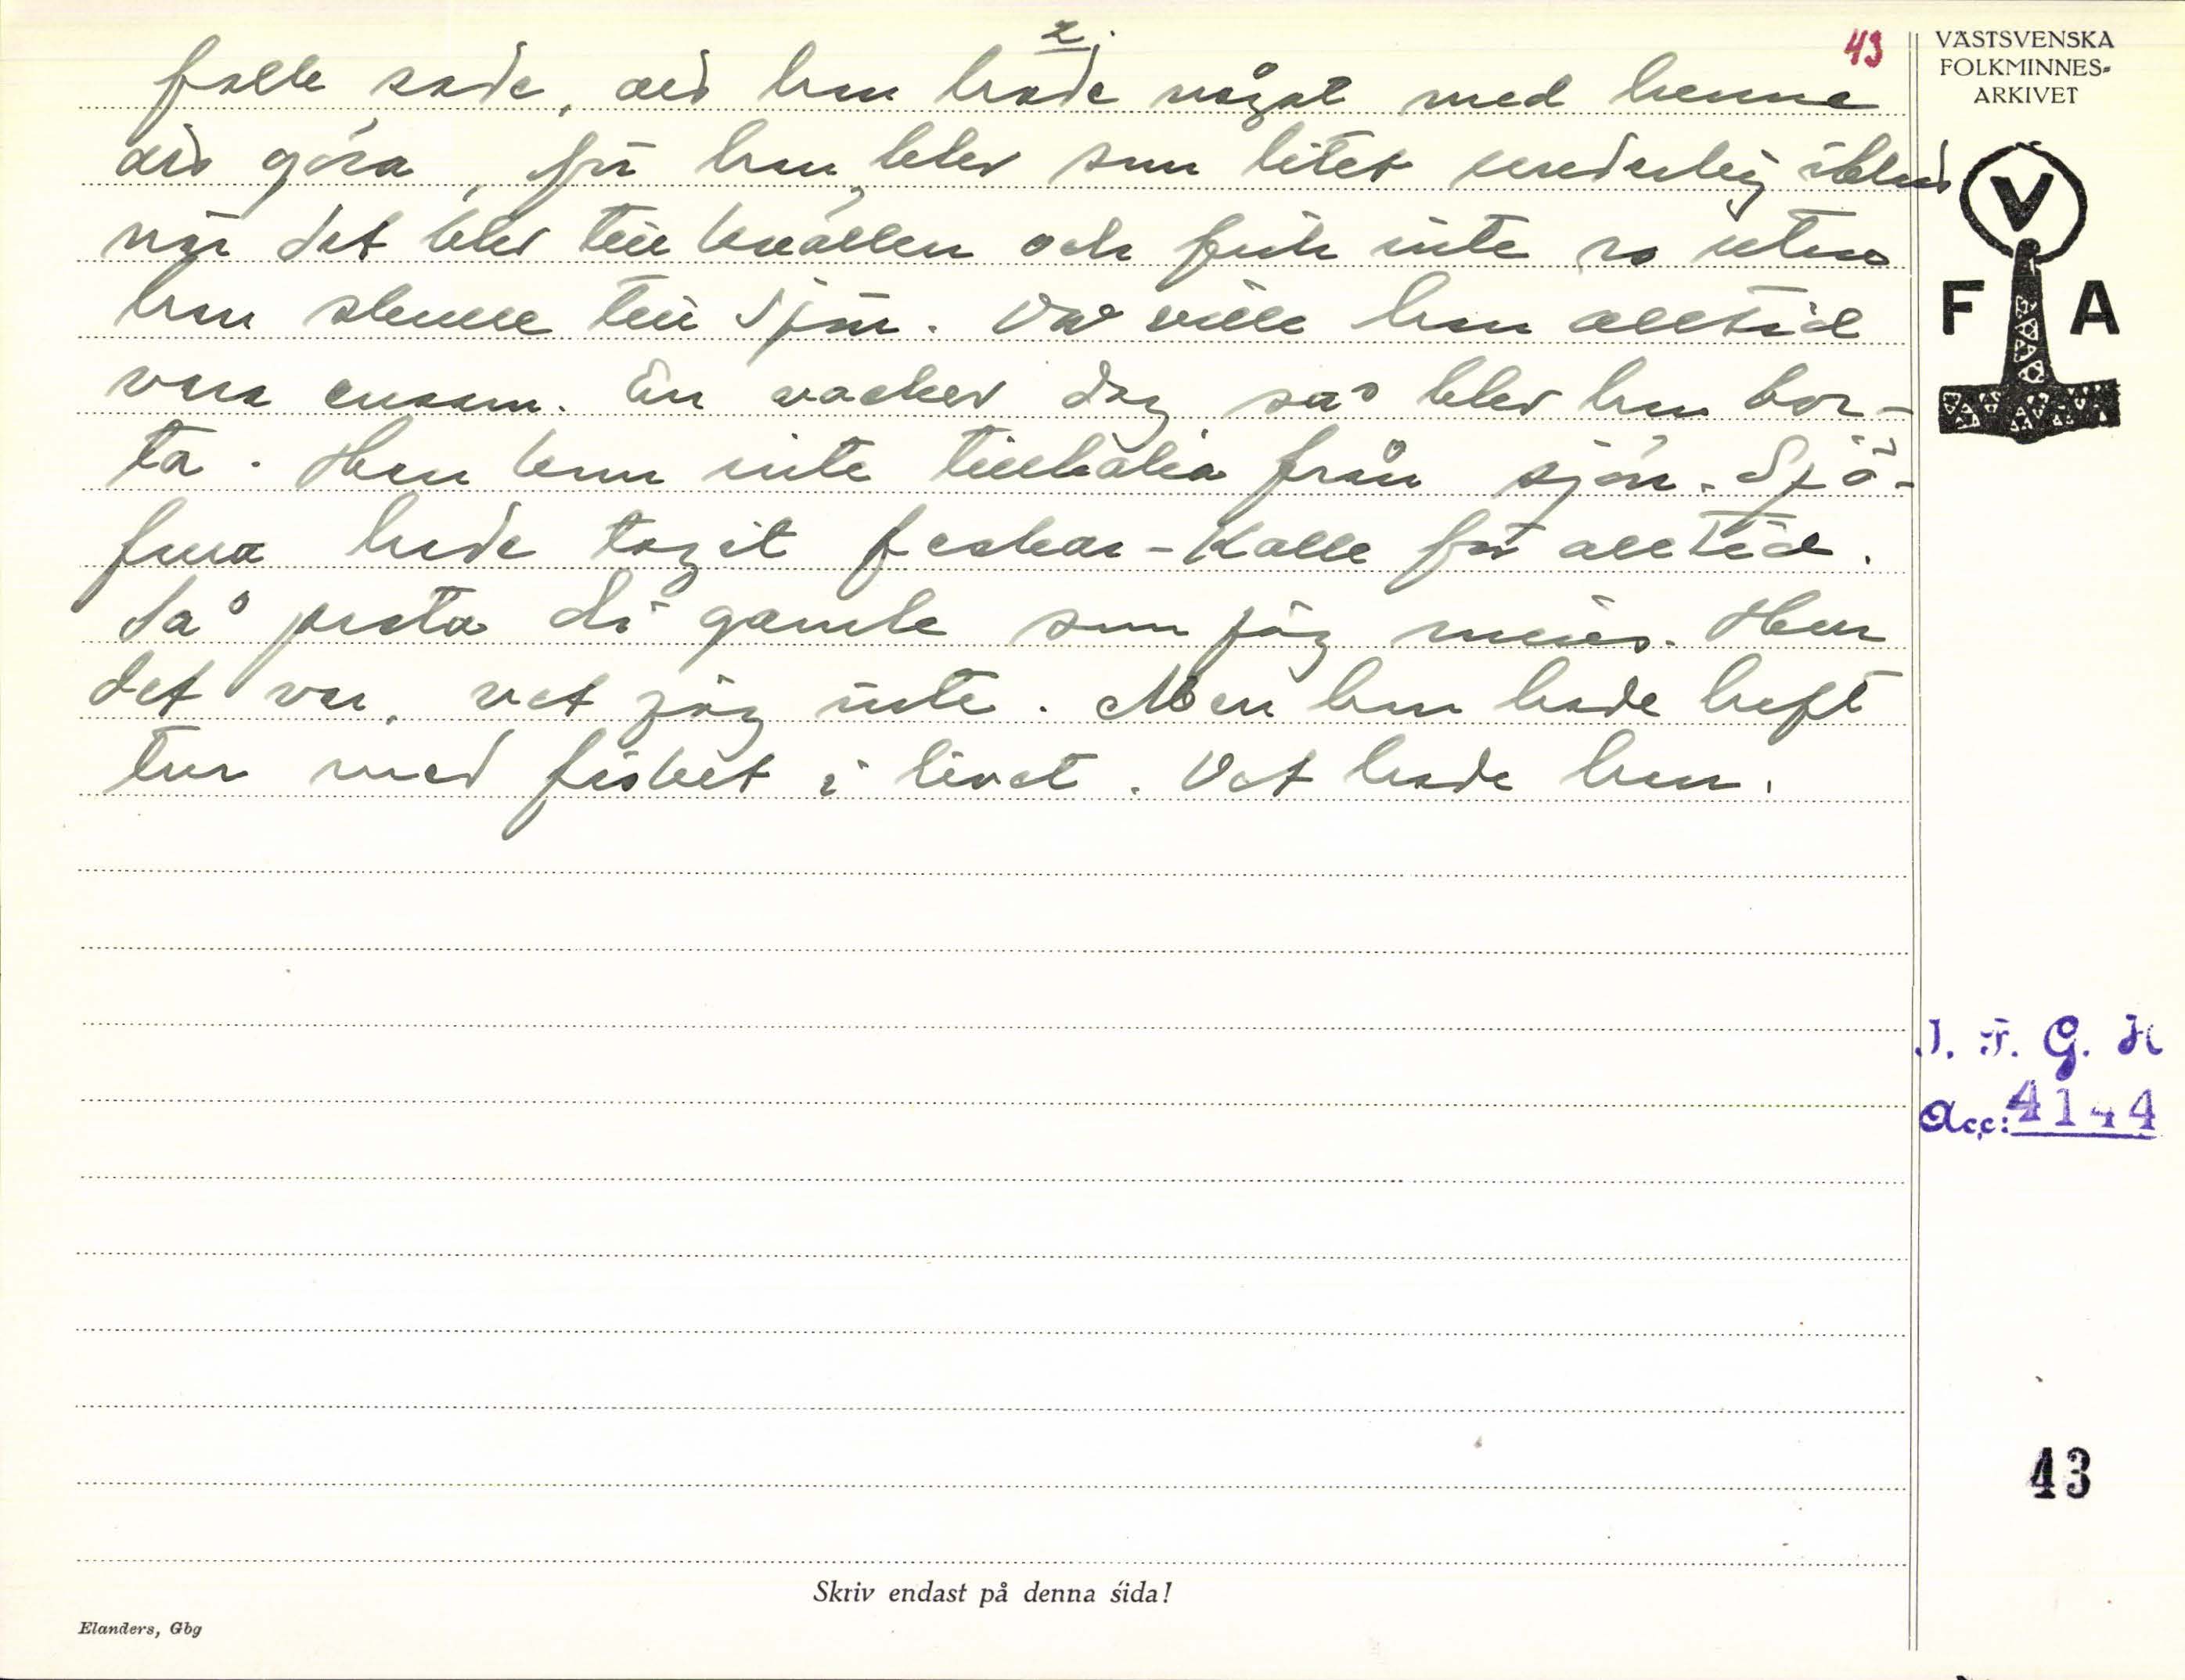 2.
43
folk sade, att han hade något med henne
att göra, för han blev som litet underlig ibland
när det blev till kvällen och fick inte ro utan
han skulle till sjön. Då ville han alltid
vara ensam. En vacker dag så blev han bor-
ta. Han kom inte tillbaka från sjön. Sjö-
frua hade tagit Feskar-Kalle för alltid.
Så prata di gamle som jag minns. Hur
det var, vet jag inte. Men han hade haft
tur med fisket i livet. Det hade han.
VÄSTSVENSKA
FOLKMINNES-
ARKIVET
V
F A
I. F. G. H
Acc: 4144
43
Skriv endast på denna sida!
Elanders, Gbg